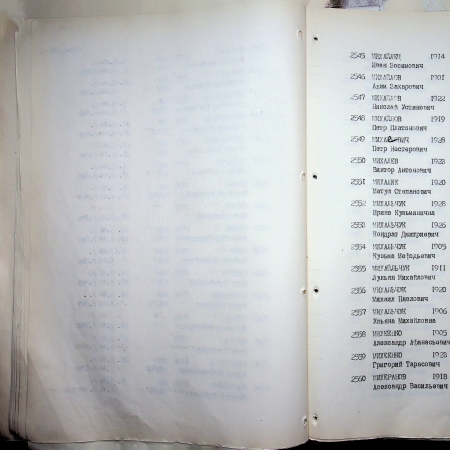 2545 МИХАЙЛЕЦ 1914
Иван Зосимович
2546 МИХАЙЛОВ 1901
Аким Захарович
2547 МИХАЙЛОВ 1922
Николай Устинович
2548 МИХАЙЛОВ 1919
Петр Платонович
2549 1928
Петр Нестерович
2550 МИХАЛЕВ 1923
Виктор Антонович
2551 МИХАЛИК 1920
Матус Степанович
2552 МИХАЛЬЧУК 1928
Ирина Кузьминична
2553 МИХАЛЬЧУК 1926
Кондрат Дмитриевич
2554 МИХАЛЬЧУК 1905
Кузьма Мефодьевич
2555 МИХАЛЬЧУК 1911
Лукьян Михайлович
2556 МИХАЛЬЧУК 1920
Михаил Павлович
2557 МИХАЛЬЧУК 1906
Ульяна Михайловна
2558 МИХНЕНКО 1905
Александр Афанасьевич
2559 1923
Григорий Тарасович
2560 1918
Александр Васильевич